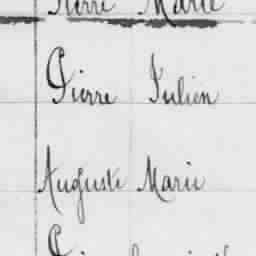 Pierre Marie
Pierre Julien
Auguste Marie